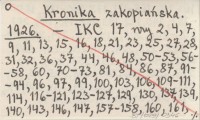 Kronika zakopiańska.
1926. – IKC 17, nry 2, 4, 7,
9, 11, 13, 15, 16, 18, 21, 23, 25, 27, 28,
31, 32, 36, 37, 44, 46, 48, 50–53, 56–
–58, 60, 70–73, 81, 84, 86, 87, 91–
–94, 96, 97, 99, 100, 103, 106, 109–111,
114, 116–121, 123–127, 129, 130, 137, 139,
140, 143, 146, 147, 157–158, 160, 161,